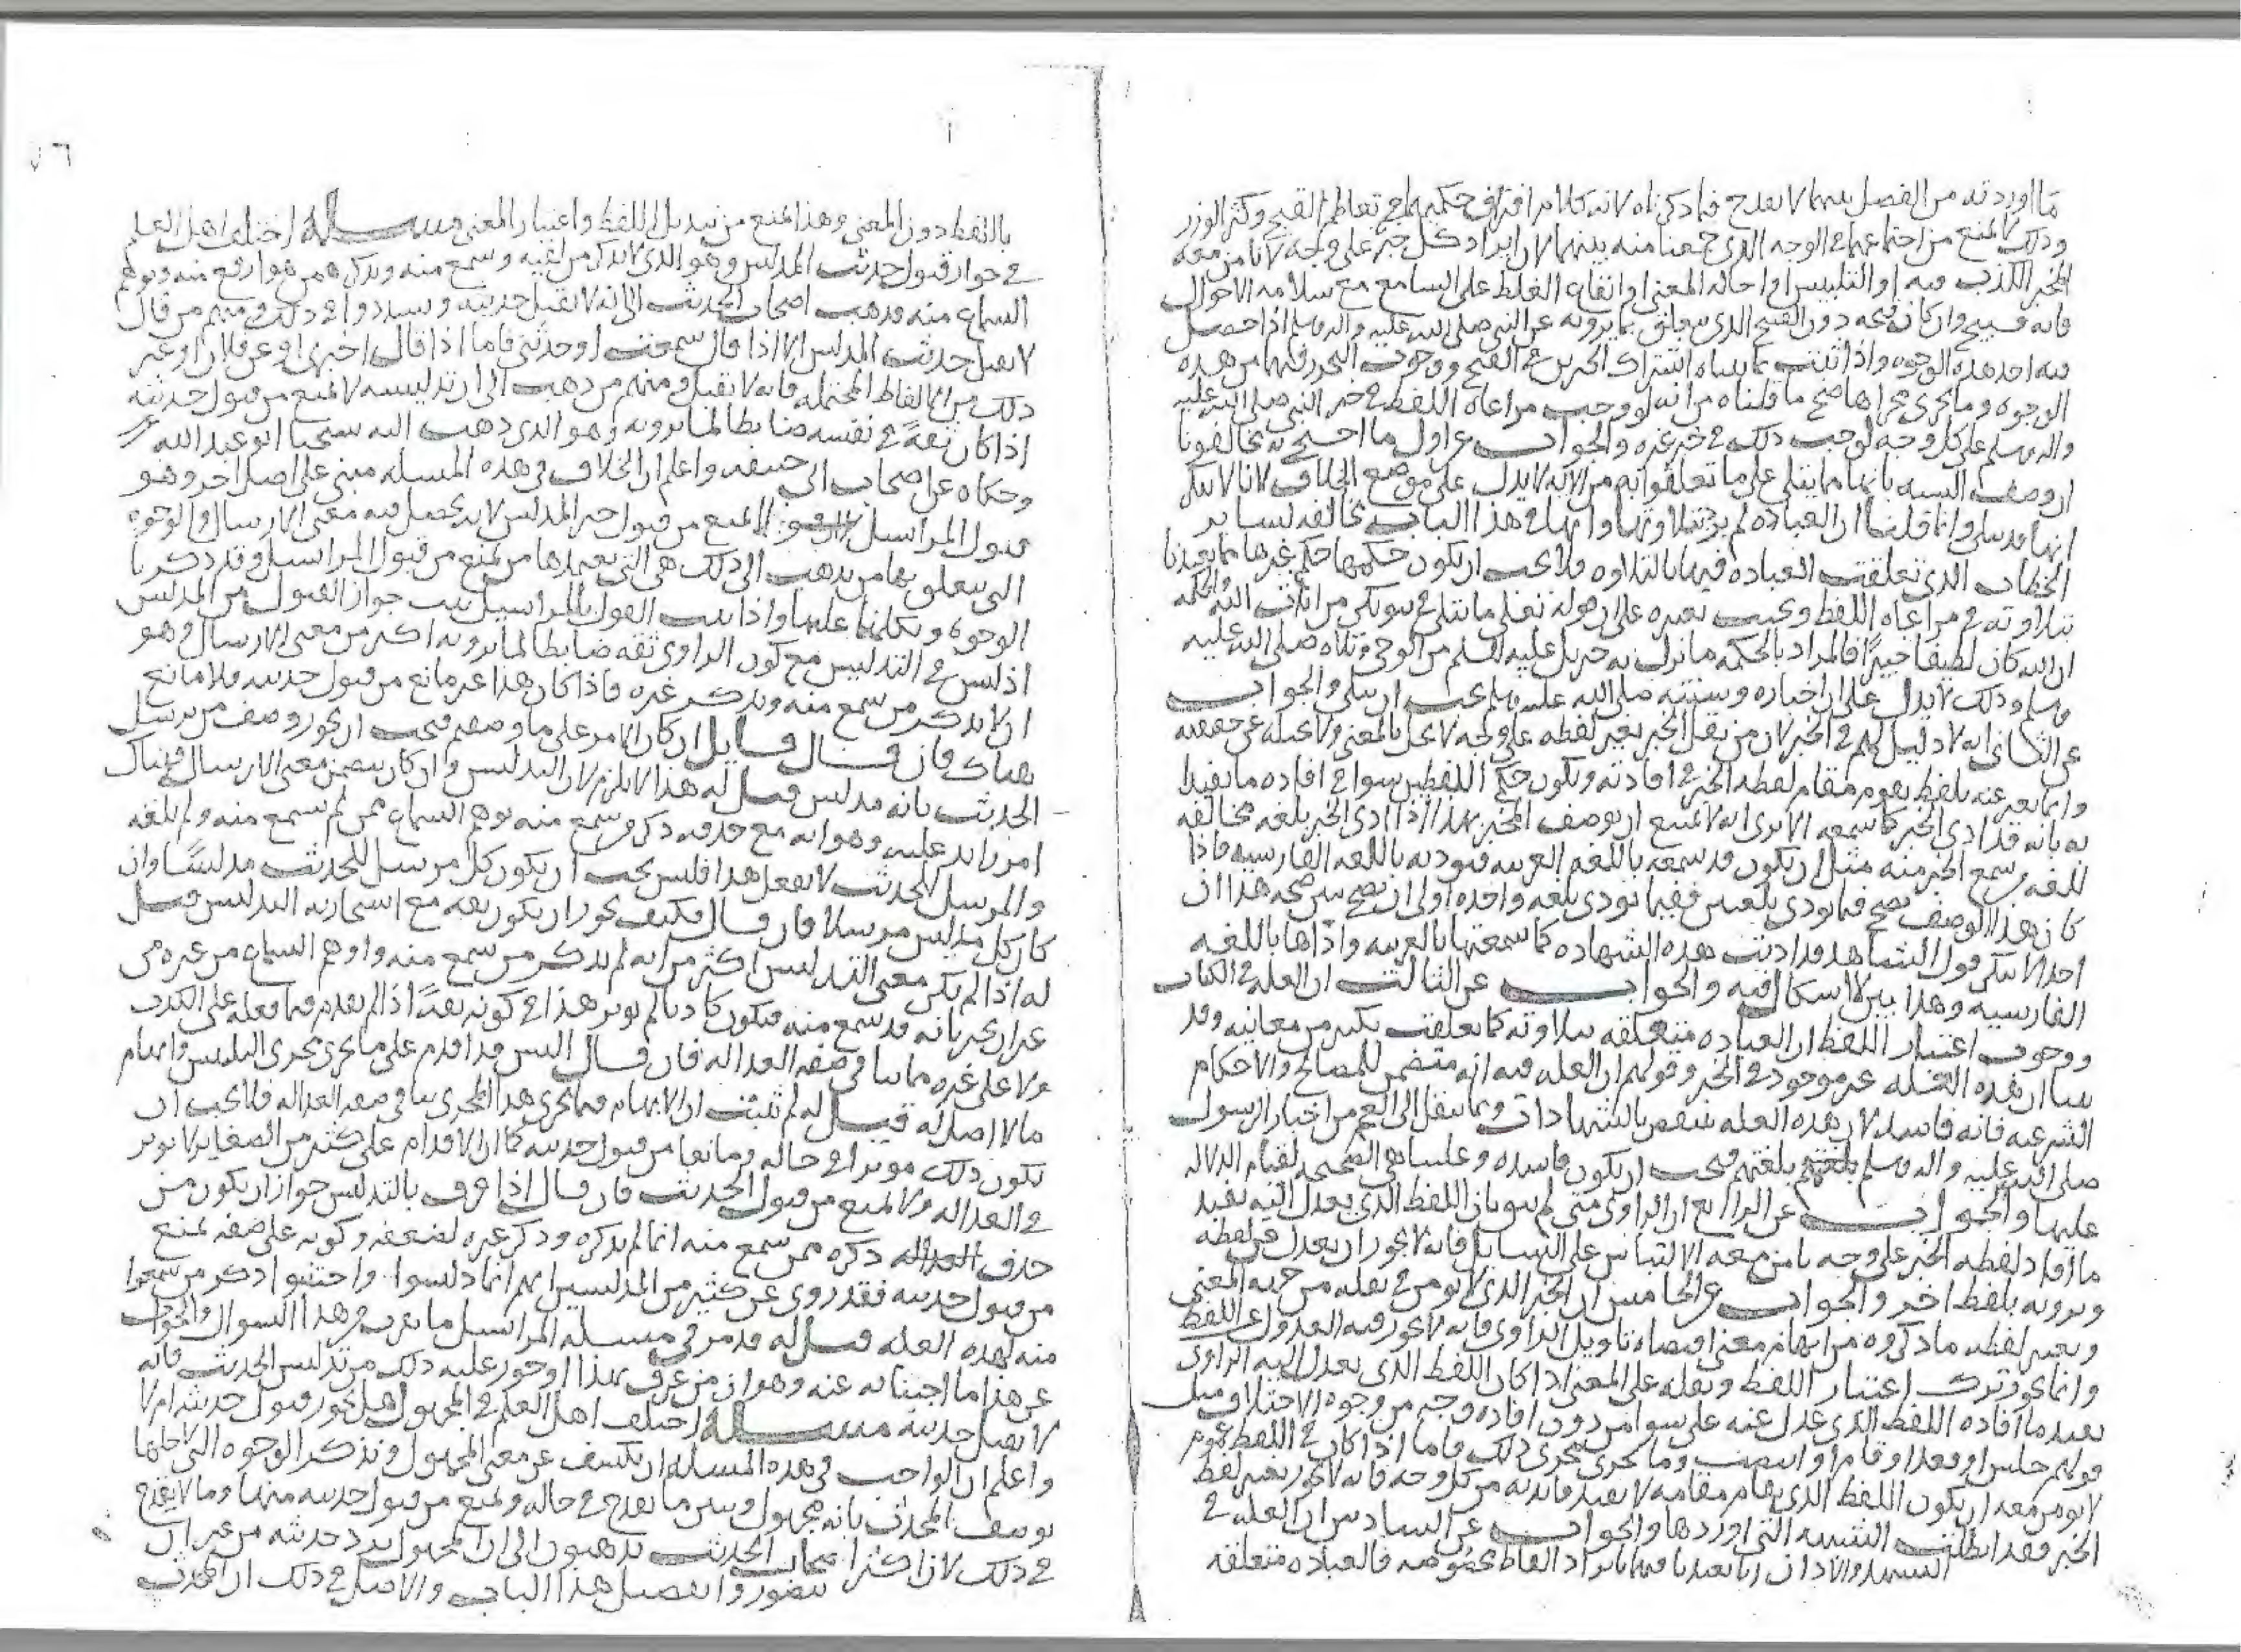 ما اوردته من الفصل بينهما لا يقدح فيما ذكرناه لانه كلام افتراق حكميهما في تعاظم القبيح وكثر الوزر
وذلك لا يمنع من اجتماعهما في الوجه الذي جمعنا منه بينهما لان ايراد كل خبر على وجه لا نامن معه
الخبر الكذب فيه او التلبيس او احاله المعنى او ايقاع الغلط على السامع مع سلامه الاحوال
فانه قبيح وان كان قبحه دون القبيح الذي يتعلق بما يرويه عن النبي صلى الله عليه واله وسلم اذا حصل
فيه احد هذه الوجوه واذا ثبت بما بيناه اشتراك الخبرين في القبح ووجوب التحرز فيهما من هذه
الوجوه وما يجري مجراها صح ما قلناه من انه لو وجب مراعاه اللفظ في خبر النبي صلى الله عليه
واله وسلم على كل وجه لوجب ذلك في خبر غيره والجواب عن اول ما احتج به مخالفونا
ان وصف السنه بانها مما يتلى على ما تعلقوا به من الايه لا يدل على موضع الخلاف لانا لا ننكر
انها قد تتلى وانما قلنا ان العباده لم يرد بتلاوتها وانها في هذا الباب مخالفه لساير
الخطاب الذي تعلقت العباده فيها بالتلاوه فلا يجب ان يكون حكمها حكم غيرها مما تعبدنا
بتلاوته في مراعاه اللفظ
ان الله كان لطيفا خبيرا فالمراد بالحكمه ما نزل به جبريل عليه السلم من الوحي وتلاه صلى الله عليه
وسلم وذلك لا يدل على ان اخباره وسنته صلى الله عليه وسلم يجب ان تتلى والجواب
عن الثاني انه لا دليل لهم في الخبر لان من نقل الخبر بغير لفظه على وجه لا يخل بالمعنى ولا يحيله عن حقيقته
وانما يعبر عنه بلفظ يقوم مقام لفظه الخبر في افادته ويكون حكم اللفظين سوا في افاده ما يفيد
به بانه قد ادى الخبر كما سمعه الا ترى انه لا يمتنع ان يوصف المخبر بهذا اذا ادى الخبر بلغه مخالفه
للغه من سمع الخبر منه مثل ان يكون قد سمعه باللغه العربيه فيوديه باللغه الفارسيه فاذا
كان هذا الوصف يصح فيما يودى بلغتين ففيما يودى بلغه واحده اولى ان يصح يبين صحه هذا ان
احدا لا ينكر قول الشاهد قد اديت هذه الشهاده كما سمعتها بالعربيه واداها باللغه
الفارسيه وهذا بين لا اشكال فيه والجواب عن الثالث ان العله في الكتاب
ووجوب اعتبار اللفظ ان العباده متعلقه بتلاوته كما تعلقت بكثير من معانيه وقد
بينا ان هذه العله غير موجوده في الخبر وقولهم ان العله فيه انه متضمن للمصالح والاحكام
الشرعيه فانه فاسد لان هذه العله تنتقض بالشهادات وبما ينقل الى العجم من اخبار الرسول
صلى الله عليه واله وسلم بلغتهم فيجب ان يكون فاسده وعلتنا هي الصحيحه لقيام الدلاله
عليها والجواب عن الرابع ان الراوي متى لم يتق بان اللفظ الذي يعدل اليه يفيد
ما افاد لفظه الخبر على وجه يامن معه الالتباس على السامع فانه لا يجوز ان يعدل عن لفظه
ويرويه بلفظ اخر والجواب عن الخامس ان الخبر الذي لا يومن في نقله من جهه المعنى
وبغير لفظه ما ذكروه من ابهام معنى تاويل الراوي فانه لا يجوز فيه العدول عن اللفظ
وانما يجوز ترك اعتبار اللفظ ونقله على المعنى اذا كان اللفظ الذي يعدل اليه الراوي
يفيد ما افاده اللفظ الذي عدل عنه على سوا من دون افاده وجه من وجوه الاختلاف مثل
قولهم جلس او قعد او قام او انتصب وما يجري مجرى ذلك فاما اذا كان في اللفظ عموم
لا يومن معه ان يكون اللفظ الذي يقام مقامه لا يفيد فايدته من كل وجه فانه لا يجوز تغيير لفظ
الخبر فقد بطلت الشبهه التي اوردها والجواب عن السادس ان العله في
التشهد والاذان انا تعبدنا فيهما بايراد الفاظ مخصوصه فالعباده متعلقه
باللفظ دون المعنى وهذا يمنع من تبديل اللفظ واعتبار المعنى مسله اختلف اهل العلم
في جواز قبول حديث المدلس وهو الذي لا يذكر من لقيه وسمع منه ويذكر من هو ارفع منه ويوهم
السماع منه فذهب اصحاب الحديث الى انه لا يقبل حديثه وشددوا في ذلك ومنهم من قال
لا يقبل حديث المدلس الا اذا قال سمعت او حدثني فاما اذا قال اخبرني او عن فلان او غير
ذلك من الالفاظ المحتمله فانه لا يقبل ومنهم من ذهب الى ان تدليسه لا يمنع من قبول حديثه
اذا كان ثقة في نفسه ضابطا لما يرويه وهو الذي ذهب اليه شيخنا ابو عبد الله
وحكاه عن اصحاب ابي حنيفه واعلم ان الخلاف في هذه المسله مبني على اصل اخر وهو
قبول المراسيل المنع من قبول خبر المدلس لا يحصل فيه معنى الارسال والوجوه
التي يتعلق بها من يذهب الى ذلك هي التي يعتمدها من يمنع من قبول المراسيل وقد ذكرنا
الوجوه وتكلمنا عليها واذا ثبت القول بالمراسيل ثبت جواز القبول من المدلس
اذ ليس في التدليس مع كون الراوي ثقه ضابطا لما يرويه اكثر من معنى الارسال وهو
ان لا يذكر من سمع منه ويذكر غيره فاذا كان هذا غير مانع من قبول حديثه فلا مانع
هناك فان قال قايل ان كان الامر على ما وصفتم فيجب ان يجوز وصف من يرسل
الحديث بانه مدلس قيل له هذا لا يلزم لان التدليس وان كان يتضمن معنى الارسال فهناك
امر زايد عليه وهو انه مع حذفه ذكر من سمع منه يوهم السماع ممن لم يسمع منه ولم يلقه
والمرسل للحديث لا يفعل هذا فليس يجب ان يكون كل مرسل للحديث مدلسا وان
كان كل مدلس مرسلا فان قال فكيف يجوز ان يكون ثقه مع استجازته التدليس قيل
له اذا لم يكن معنى التدليس اكثر من انه لم يذكر من سمع منه واوهم السماع من غيره من
غير ان يخبر بانه قد سمع منه فيكون كاذبا لم يوثر هذا في كونه ثقة اذ لم يقدم فيما فعله على الكذب
ولا على غيره مما ينافي صفه العداله فان قال اليس قد اقدم على ما يجري مجرى التلبيس وايهام
ما لا اصل له قيل له لم يثبت ان الايهام فيما يجري هذا المجرى ينافي صفه العداله فلا يجب ان
يكون ذلك موثرا في حاله ومانعا من قبول حديثه كما ان الاقدام على كثير من الصغاير لا يوثر
في العداله ولا يمنع من قبول الحديث فان قال اذا عرف بالتدليس جواز ان يكون من
حذف ذكره ممن سمع منه انما لم يذكره وذكر غيره لضعفه وكونه على صفه تمنع
من قبول حديثه فقد روي عن كثير من المدلسين انهم انما دلسوا واجتنبوا ذكر من سمعوا
منه لهذه العله قيل له قد مر في مسله المراسيل ما يقرب من هذا السوال والجواب
عن هذا ما اجبنا به عنه وهو ان من عرف بهذا او جوز عليه ذلك من تدليس الحديث فانه
لا يقبل حديثه مسله اختلف اهل العلم في المجهول هل يجوز قبول حديثه ام لا
واعلم ان الواجب في هذه المسله ان نكشف عن معنى المجهول ونذكر الوجوه التي لاجلها
يوصف المحدث بانه مجهول ونبين ما يقدح في حاله ويمنع من قبول حديثه منها وما لا يقدح
في ذلك لان اكثر اصحاب الحديث يذهبون الى ان المجهول يرد حديثه من غير ان
يتصوروا تفصيل هذا الباب والاصل في ذلك ان المحدث